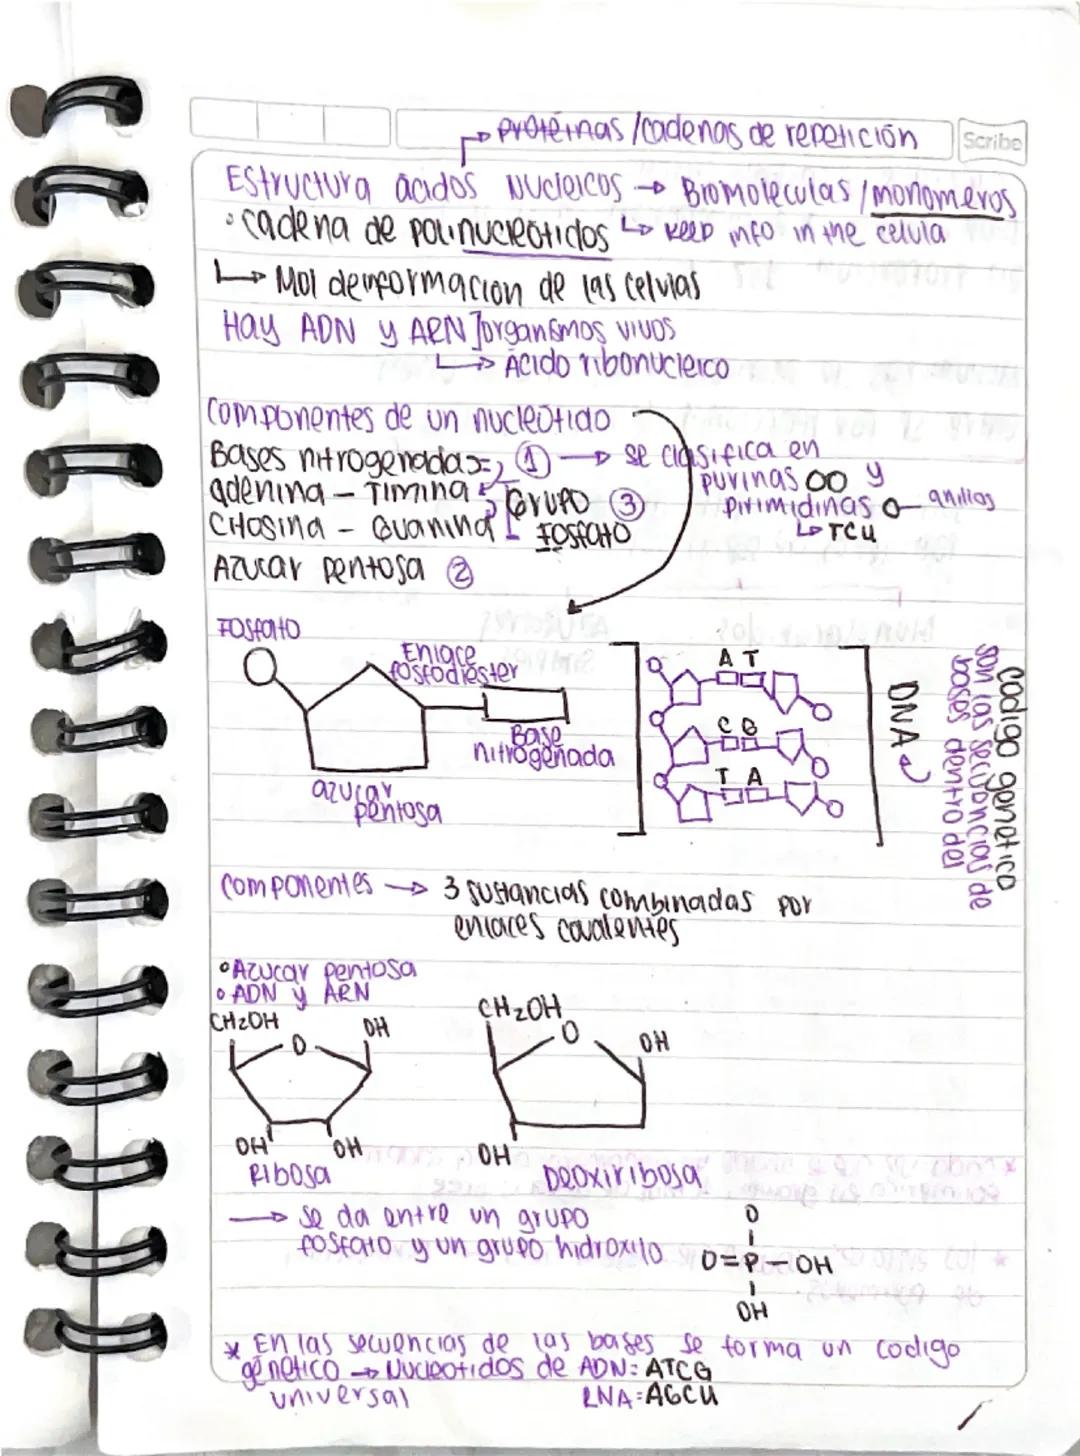 proteinas /cadenas de repetición
Scribe
Estructura ácidos Nucleicos → Biomoleculas / monomeros
• cadena de polinucleótidos ↳ keep info in the celula
↳ Mol de informacion de las celulas
Hay ADN y ARN ] organismos vivos
↳ Ácido ribonucleico
componentes de un nucleótido
Bases nitrogenadas ① → se clasifica en
purinas y
adenina - Timina Grupo ③
pirimidinas anillos
Citosina - Guanina Fosfato
↳ TCU
Azucar pentosa ②
Fosfato
Enlace
fosfodiester
Base
nitrogenada
azucar
pentosa
A T
C G
T A
DNA
codigo genetico
son las secuencias de
bases dentro del
componentes → 3 sustancias combinadas por
enlaces covalentes
• Azucar pentosa
• ADN y ARN
CH2OH
O
OH
OH
OH
Ribosa
CH2OH
O
OH
OH
Deoxiribosa
→ se da entre un grupo
fosfato y un grupo hidroxilo
O
O=P-OH
OH
* En las secuencias de las bases se forma un codigo
génetico → Nucleotidos de ADN: ATCG
universal RNA: AGCU